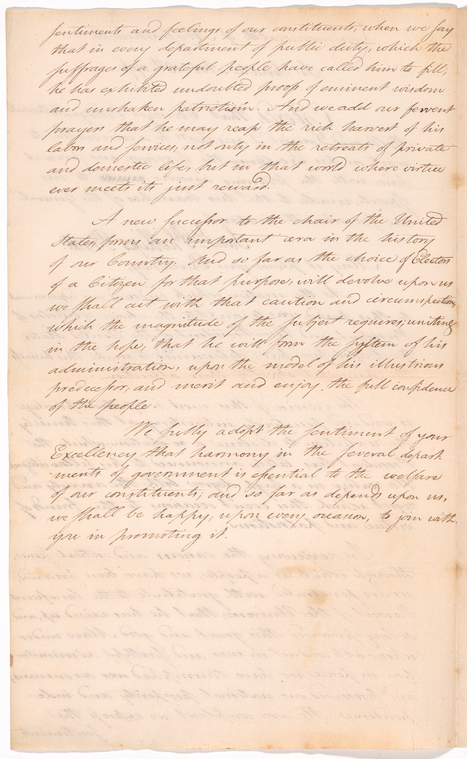 sentiments and feelings of our constituents, when we say
that in every department of public duty, which the
suffrages of a grateful people have called him to fill,
he has exhibited undoubted proofs of eminent wisdom
and unshaken patriotism. And we add our fervent
prayers that he may reap the rich harvest of his
labors and services, not only in the retreats of private
and domestic life, but in that world where virtue
ever meets its just reward.
A new successor to the chair of the United
States, forms an important æra in the history
of our Country. And so far as the choice of Electors
of a Citizen for that purpose, will devolve upon us
we shall act with that caution and circumspection
which the magnitude of the subject requires; uniting
in the hope, that he will form the system of his
administration, upon the model of his illustrious
predecessor, and merit and enjoy the full confidence
of the people.
We fully adopt the sentiment of your
Excellency that harmony in the several depart
-ments of government is essential to the welfare
of our constituents; and so far as depends upon us,
we shall be happy, upon every occasion, to join with
you in promoting it.